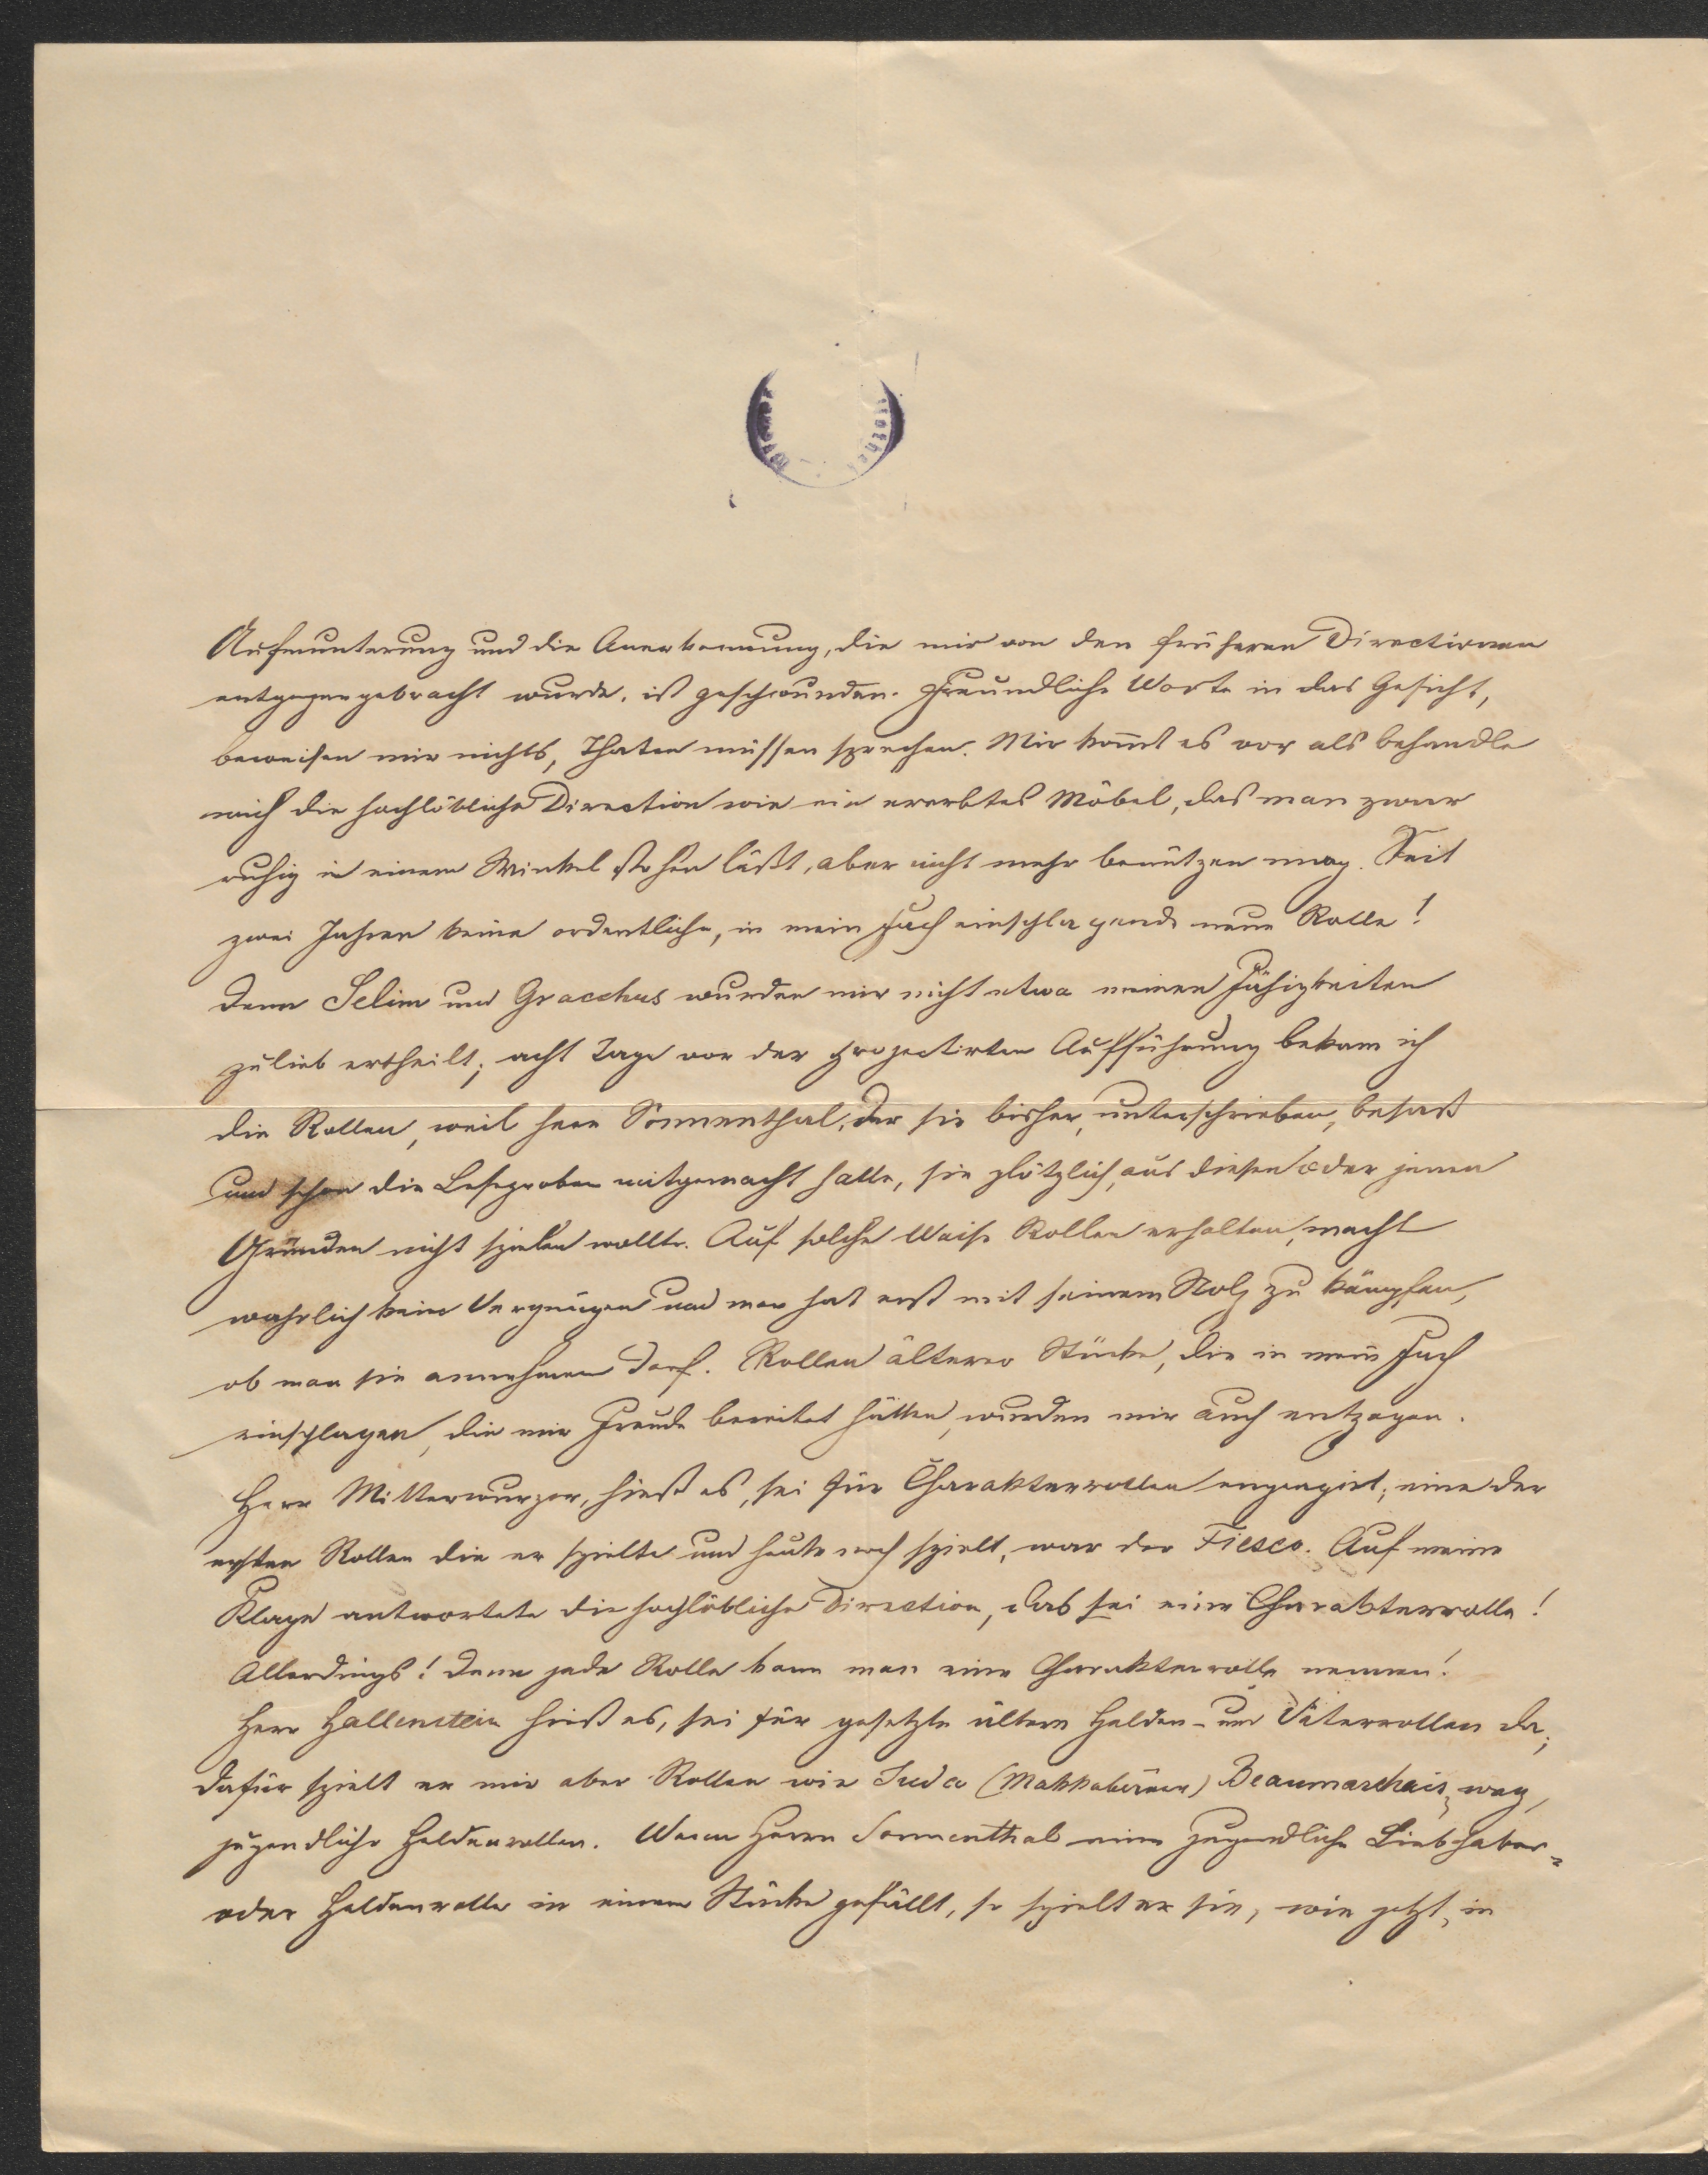 Aufmunterung und die Anerkennung, die mir von den früheren Directionen
entgegengebracht wurde, ist geschwunden. Freundliche Worte in das Gesicht,
beweisen mir nichts, Thaten müssen sprechen. Mir kom̄t es vor als behandle
mich die hochlöbliche Direction wie ein ererbtes Möbel, das man zwar
ruhig in einem Winkel stehen läßt, aber nicht mehr benützen mag. Seit
zwei Jahren keine ordentliche, in mein Fach einschlagende neue Rolle!
Denn Selim und Gracchus wurden mir nicht etwa meinen Fähigkeiten
zulieb ertheilt; acht Tage vor der projectirten Aufführung bekam ich
die Rollen, weil Herr Sonnenthal, der sie bisher, unterschrieben, besaß
und schon die Leseproben mitgemacht hatte, sie plötzlich, aus diesen oder jenen
Gründen nicht spielen wollte. Auf solche Weise Rollen erhalten, macht
wahrlich kein Vergnügen und man hat erst mit seinem Stolz zu kämpfen,
ob man sie annehmen darf. Rollen älterer Stücke, die in mein Fach
einschlagen, die mir Freude bereitet hätten, wurden mir auch entzogen.
Herr Mitterwurzer, hieß es, sei für Charakterrollen engagirt; eine der
ersten Rollen die er spielte und heute noch spielt, war der Fiesco. Auf meine
Klage antwortete die hochlöbliche Direction, das sei eine Charakterrolle!
Allerdings! denn jede Rolle kann man eine Charakterrolle nennen!
Herr Hallenstein hieß es, sei für gesetzte ältere Helden- und Väterrollen da;
dafür spielt er mir aber Rollen wie Juda (Makkabäer) Beaumarchais, weg,
jugendliche Heldenrollen. Wenn Herrn Sonnenthal eine jugendliche Liebhaber=
oder Heldenrolle in einem Stücke gefällt, so spielt er sie, wie jetzt, in